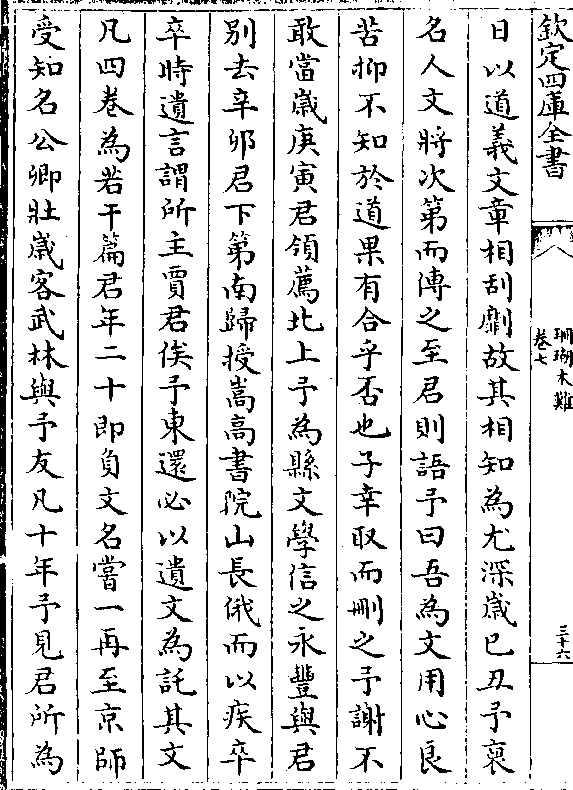 欽定四庫全書
珊瑚木難
卷七
三十六
日以道義文章相刮劘故其相知為尤深嵗已丑予裒
名人文將次第而傳之至君則語予曰吾為文用心良
苦抑不知於道果有合乎否也子幸取而刪之予謝不
敢當嵗庚寅君領薦北上予為縣文學信之永豐與君
别去辛卯君下第南歸授嵩高書院山長俄而以疾卒
卒時遺言謂所主賈君俟予東還必以遺文為託其文
凡四卷為若干篇君年二十即負文名嘗一再至京師
受知名公卿壯嵗客武林與予友凡十年予見君所為